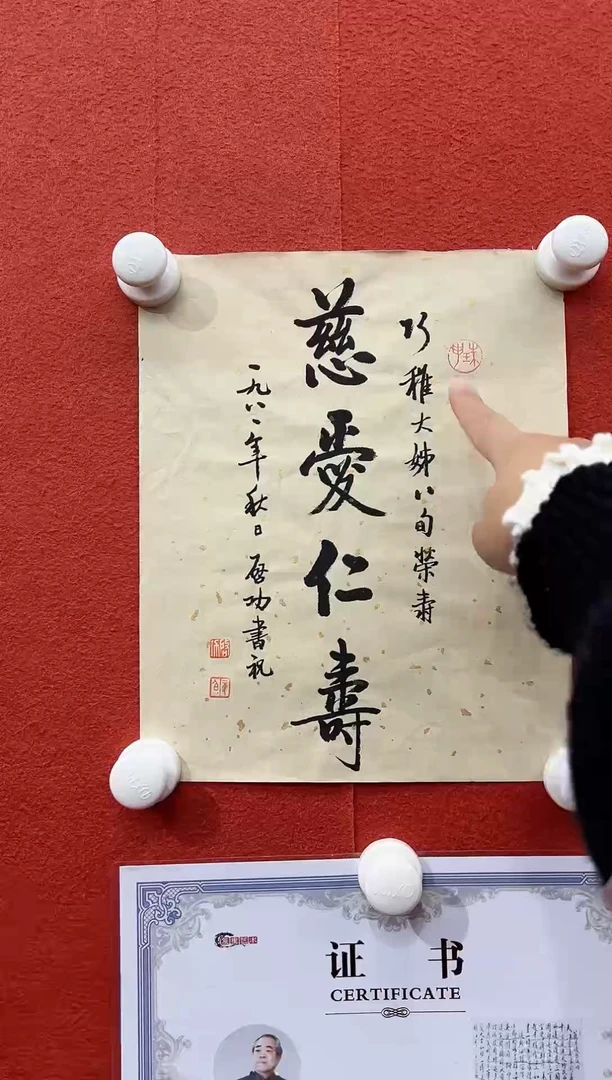 巧稚大姊八旬榮壽
慈愛仁壽
一九八一年秋日 啓功書祝
证 书
CERTIFICATE